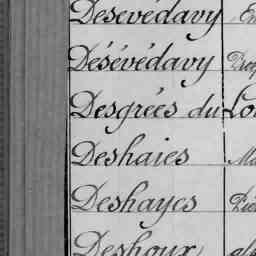 Desevédavy
Désévédavy
Desgrées du Lou
Deshaies
Deshayes
Deshoux